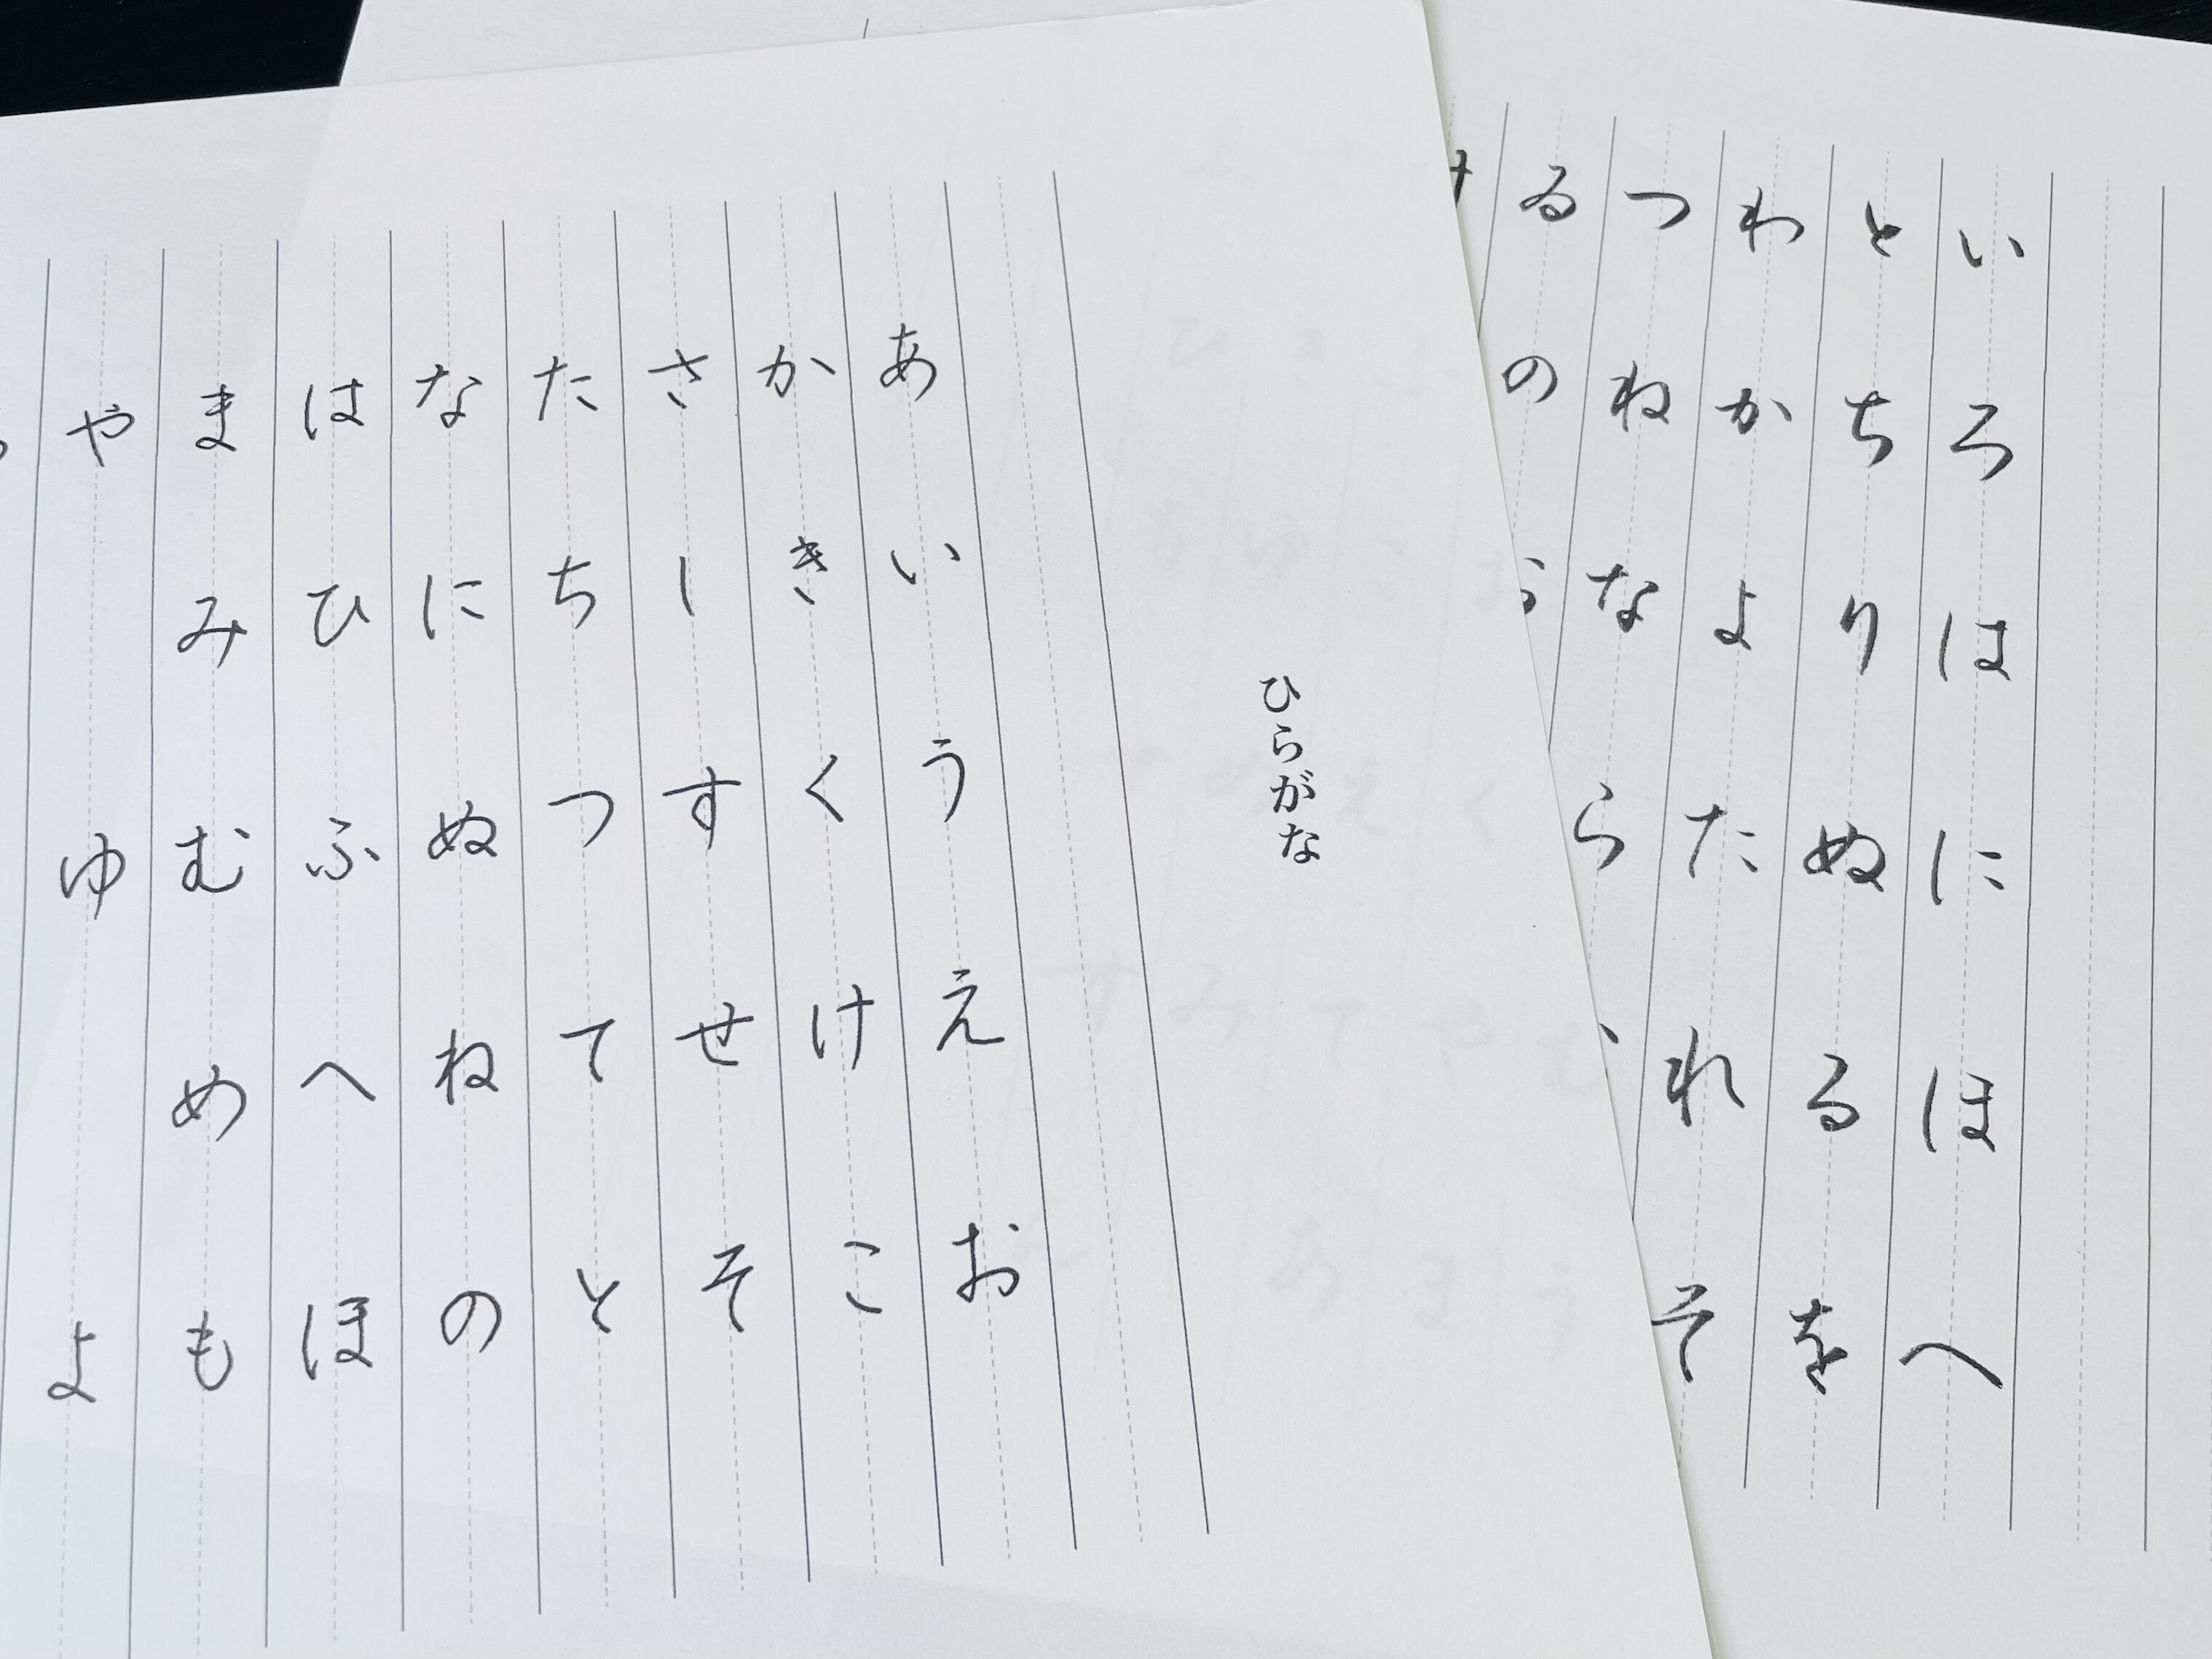 いろはにほへ
とちりぬるを
わかよたれそ
つねなら
ゐの
ひらがな
あいうえお
かきくけこ
さしすせそ
たちつてと
なにぬねの
はひふへほ
まみむめも
やゆよ